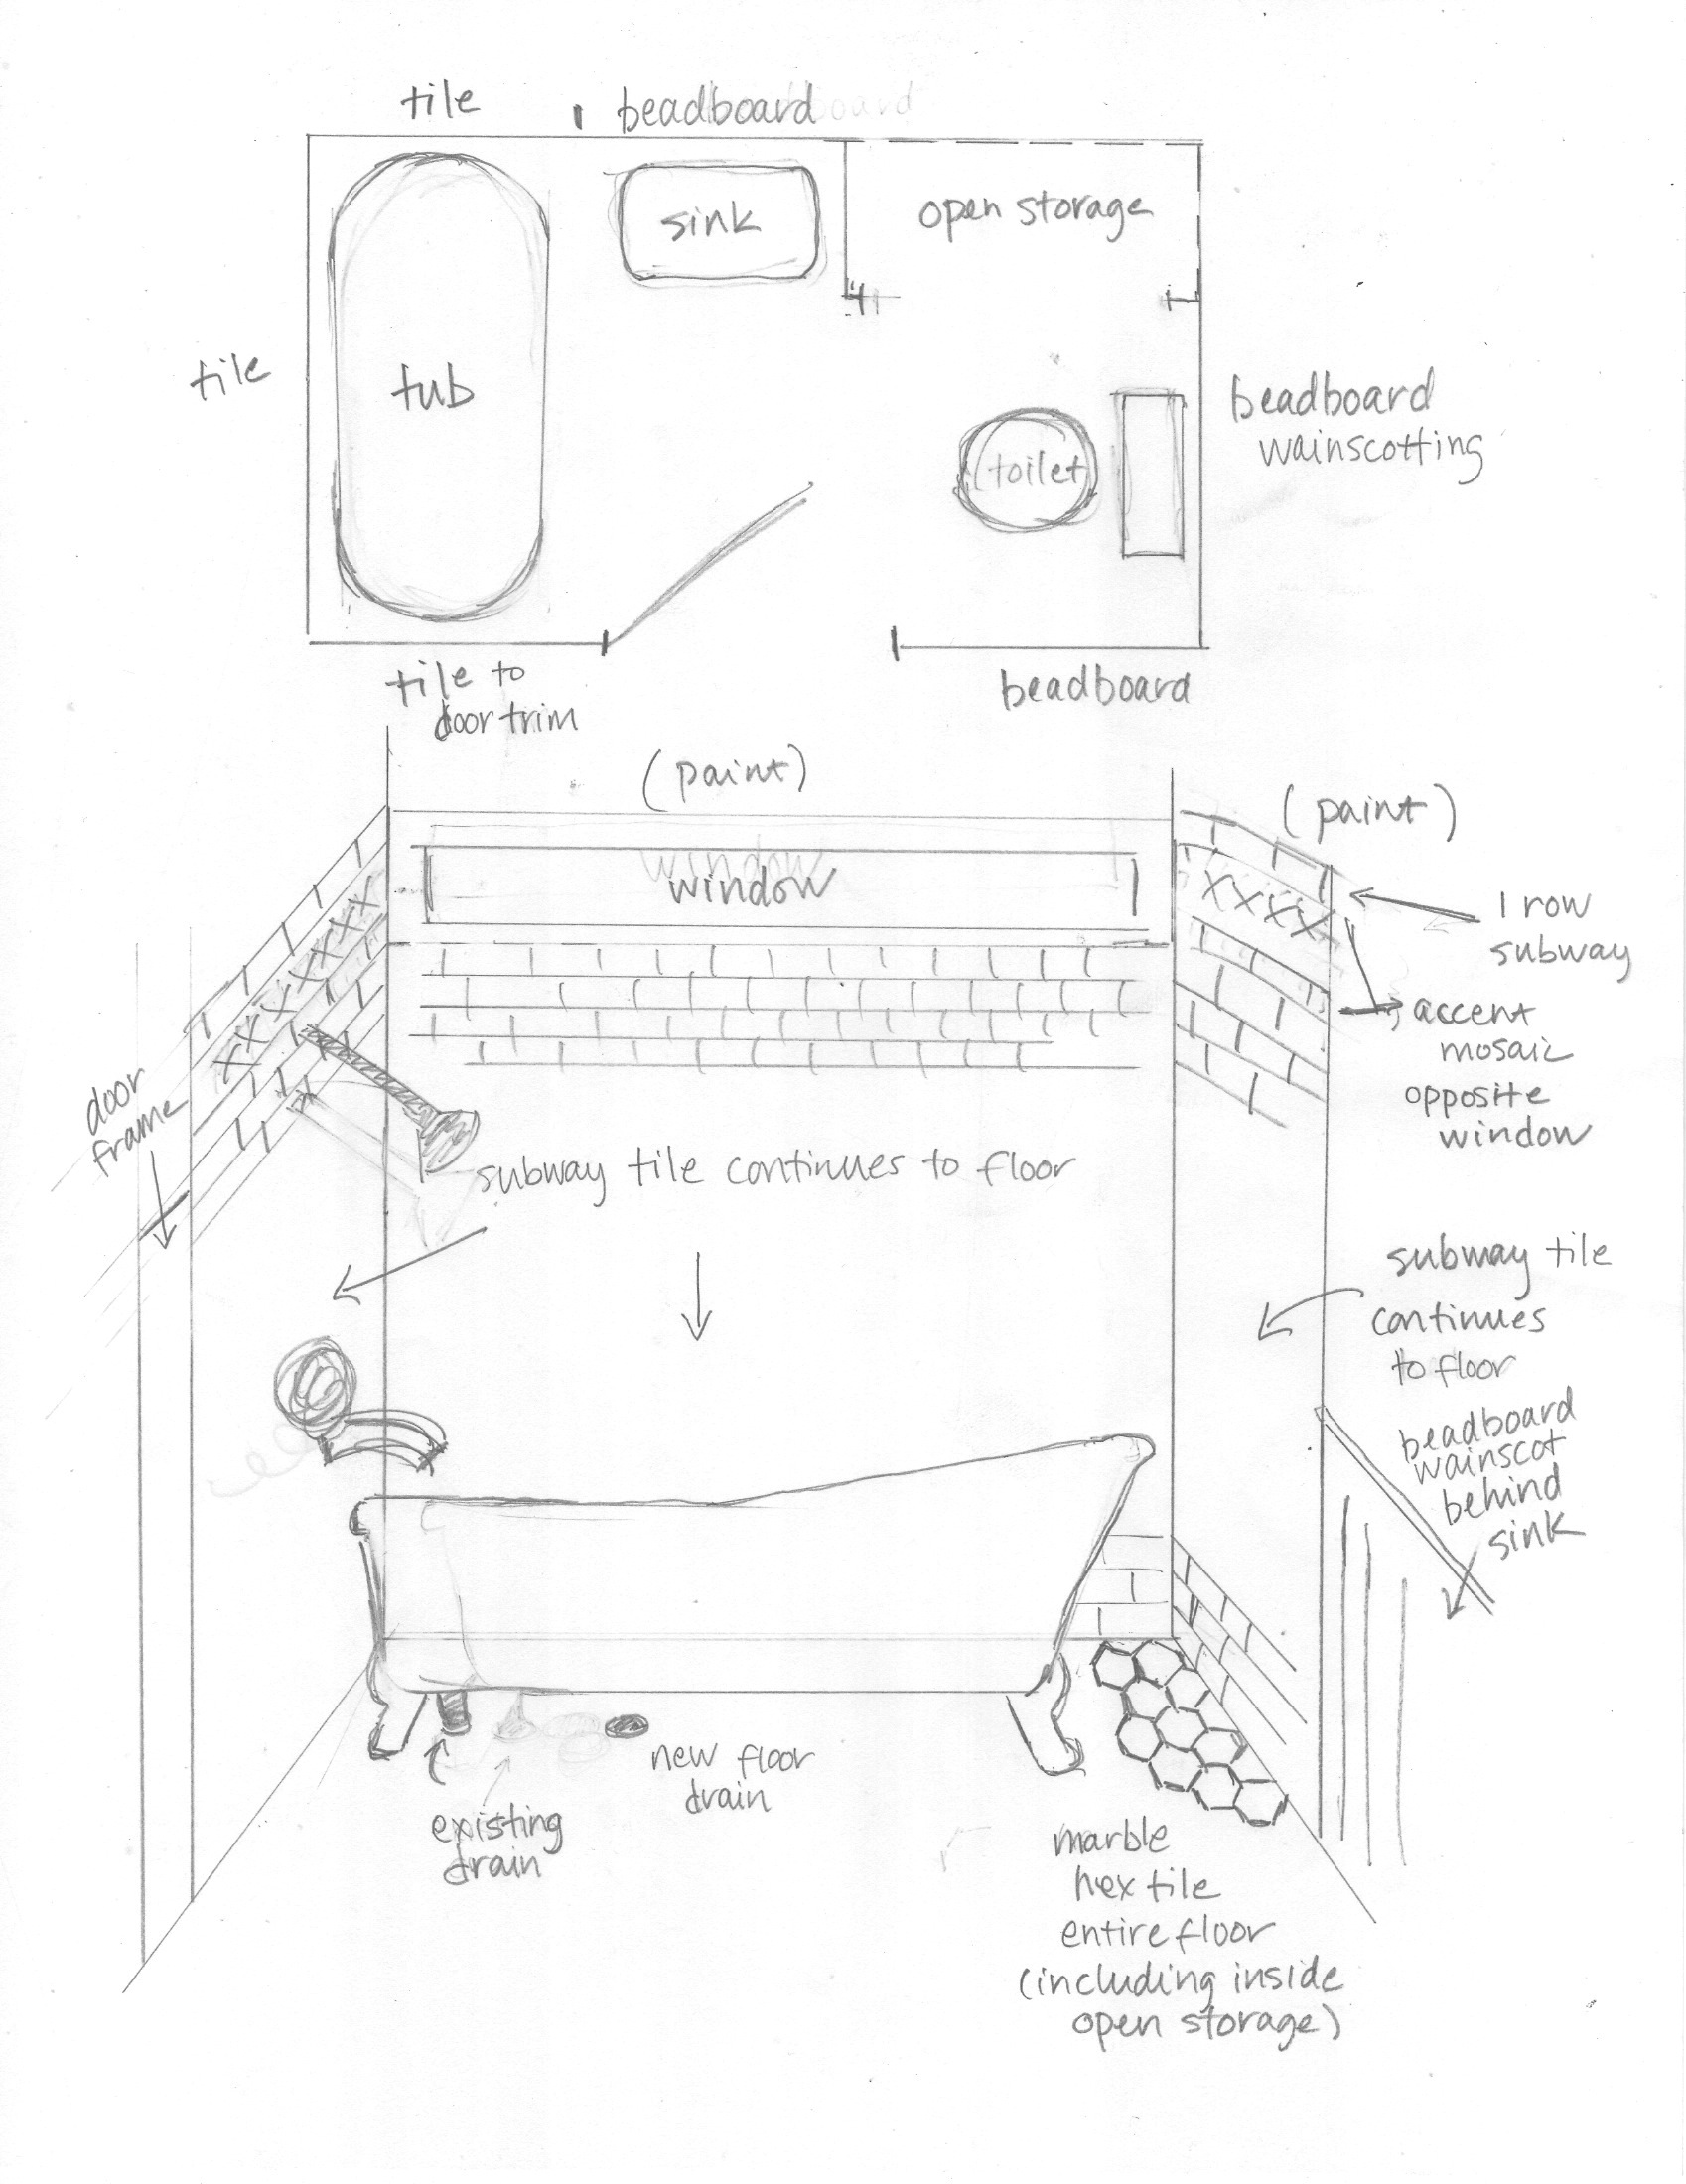 tile
beadboard
sink
open storage
tile
tub
beadboard
wainscotting
toilet
tile to
door trim
beadboard
(paint)
(paint)
window
1 row
subway
accent
mosaic
opposite
window
door
frame
subway tile continues to floor
subway tile
continues
to floor
beadboard
wainscot
behind
sink
new floor
drain
existing
drain
marble
hex tile
entire floor
(including inside
open storage)